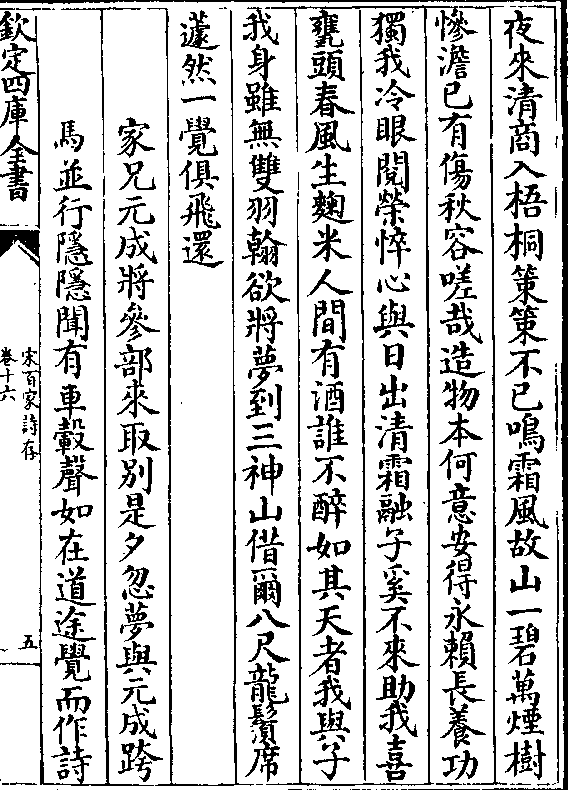 夜來清商入梧桐策策不已鳴霜風故山一碧萬煙樹
慘澹已有傷秋容嗟哉造物本何意安得永賴長養功
獨我冷眼閱榮悴心與日出清霜融子奚不來助我喜
甕頭春風生麴米人間有酒誰不醉如其天者我與子
我身雖無雙羽翰欲將夢到三神山借爾八尺龍鬚席
蘧然一覺俱飛還
家兄元成將參部來取別是夕忽夢與元成跨
馬並行隱隱聞有車轂聲如在道途覺而作詩
欽定四庫全書
宋百家詩存
卷十六
五